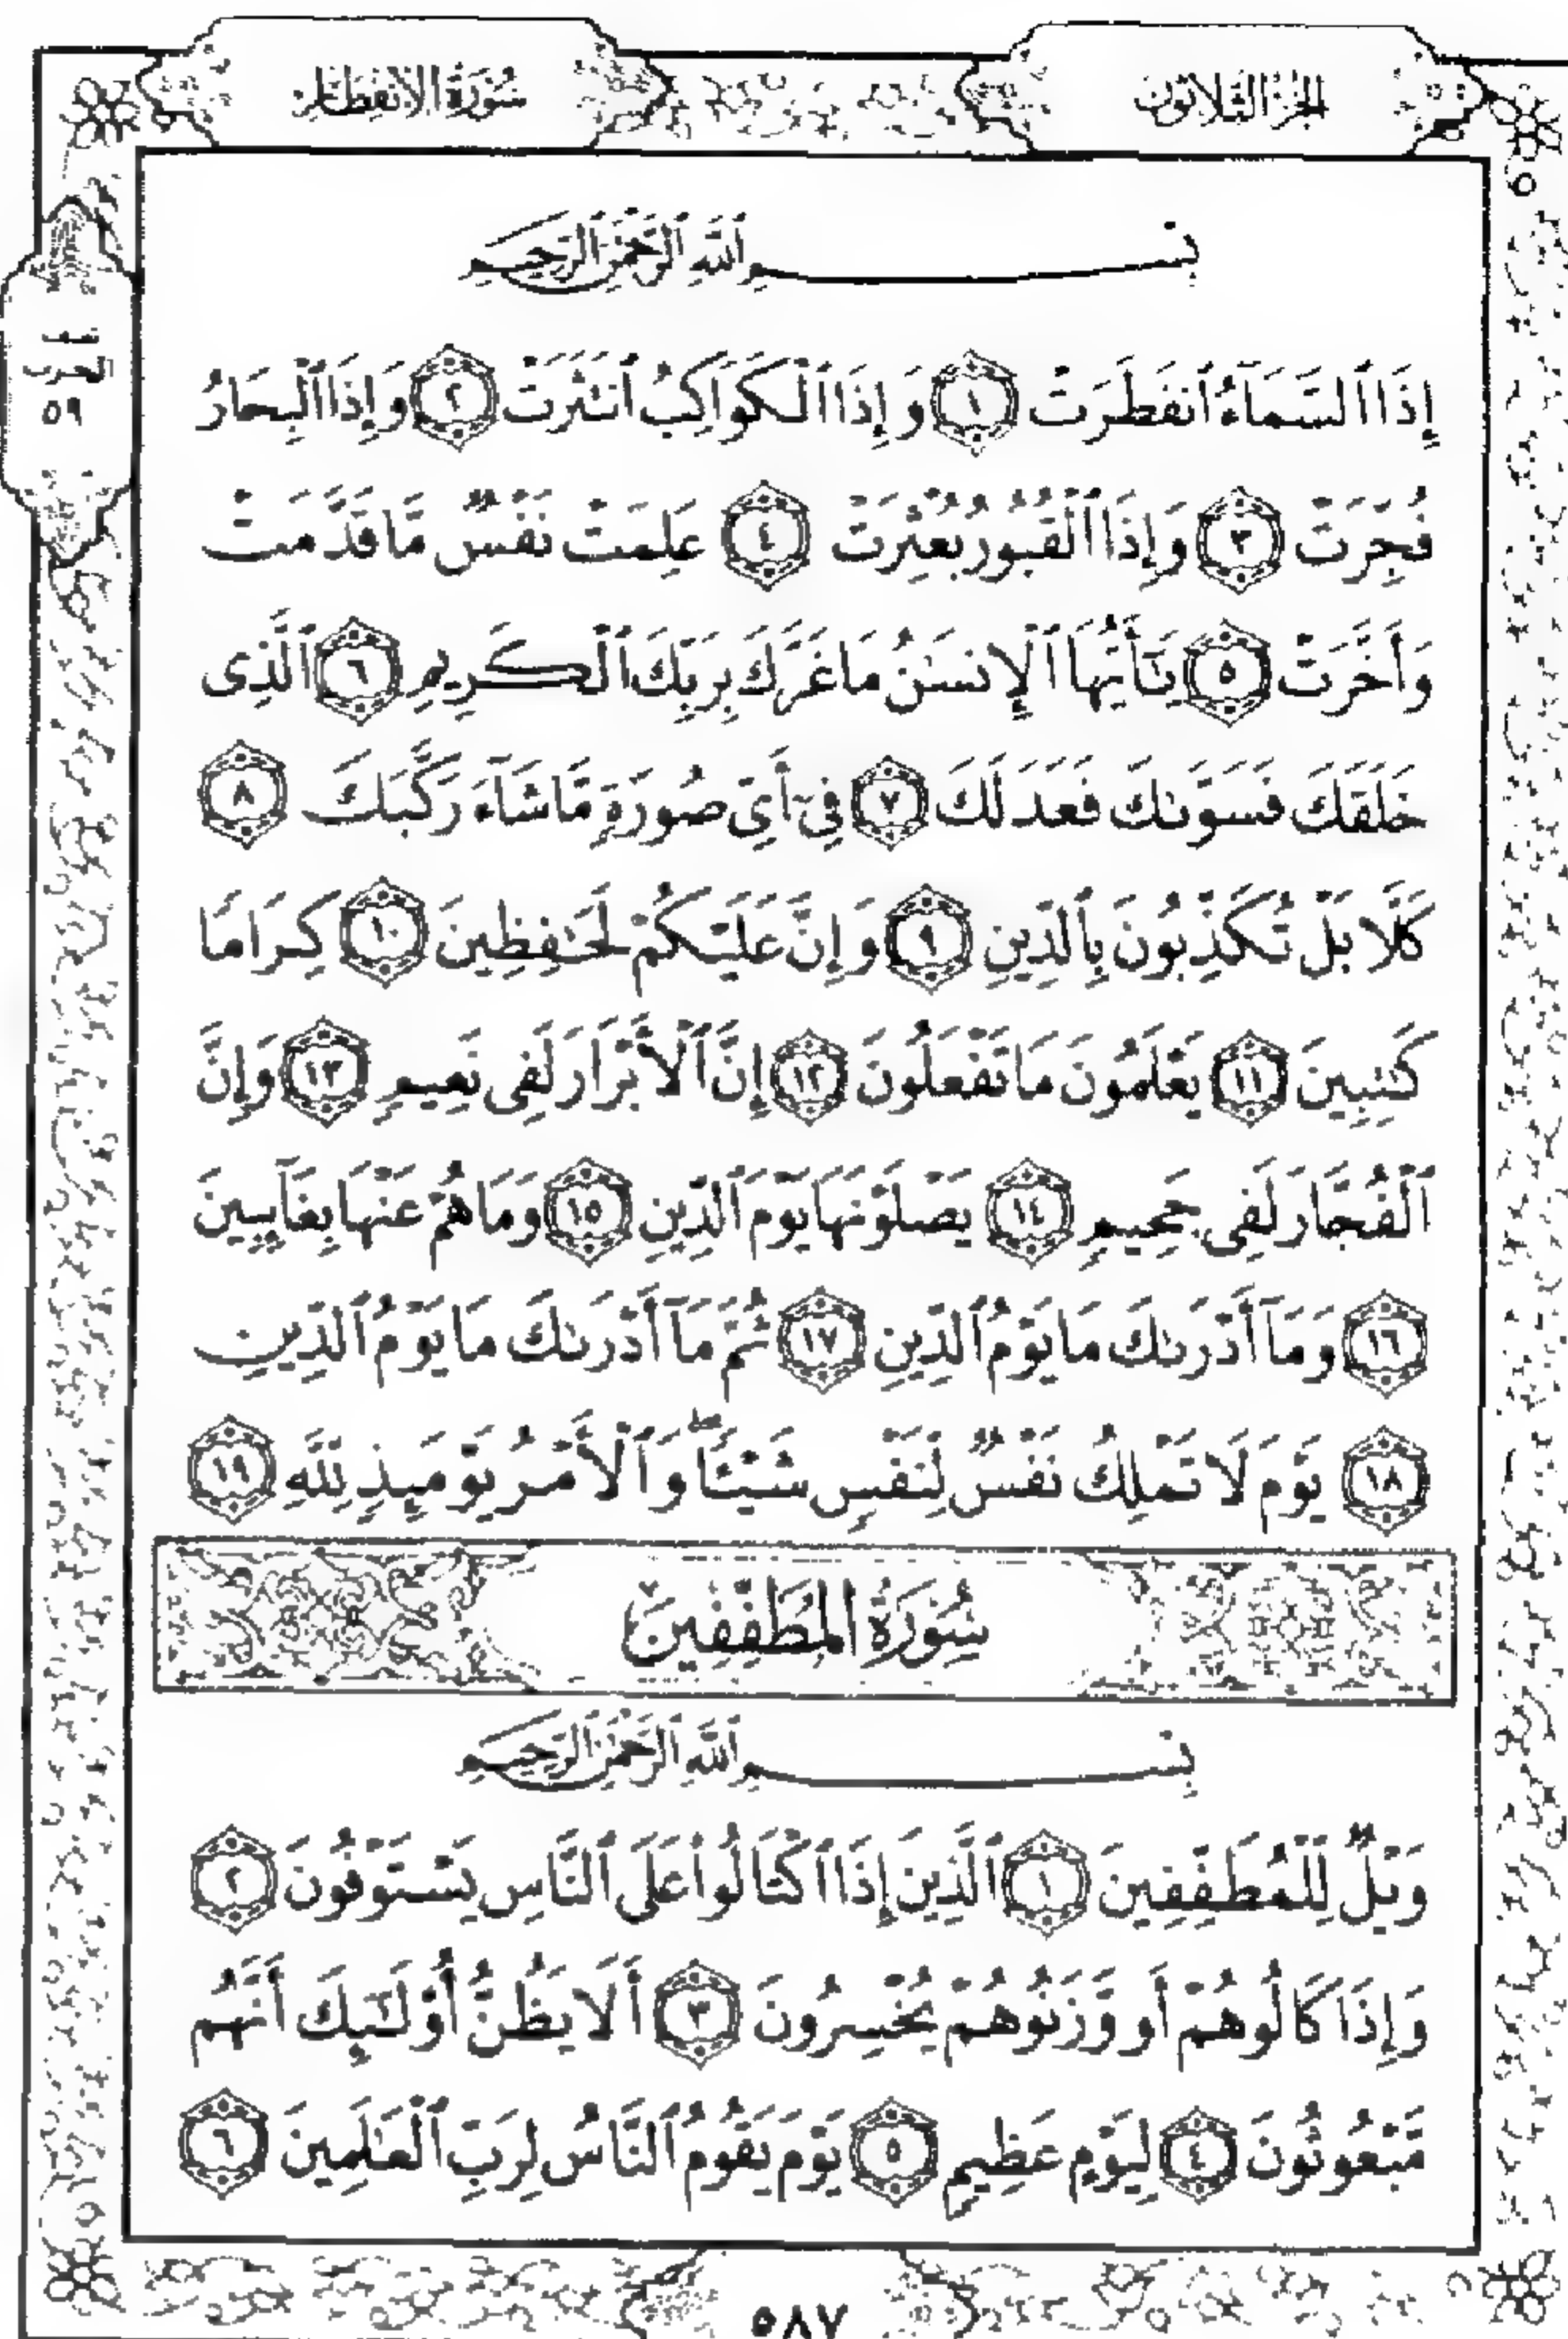 سُورَةُ الانفِطَارِ
الجُزْءُ الثَّلَاثُونَ
بِسْمِ ٱللَّهِ ٱلرَّحْمَٰنِ ٱلرَّحِيمِ
الحزب
٥٩
إِذَا ٱلسَّمَآءُ ٱنفَطَرَتْ ١ وَإِذَا ٱلْكَوَاكِبُ ٱنتَثَرَتْ ٢ وَإِذَا ٱلْبِحَارُ
فُجِّرَتْ ٣ وَإِذَا ٱلْقُبُورُ بُعْثِرَتْ ٤ عَلِمَتْ نَفْسٌ مَّا قَدَّمَتْ
وَأَخَّرَتْ ٥ يَٰٓأَيُّهَا ٱلْإِنسَٰنُ مَا غَرَّكَ بِرَبِّكَ ٱلْكَرِيمِ ٦ ٱلَّذِى
خَلَقَكَ فَسَوَّىٰكَ فَعَدَلَكَ ٧ فِىٓ أَىِّ صُورَةٍ مَّا شَآءَ رَكَّبَكَ ٨
كَلَّا بَلْ تُكَذِّبُونَ بِٱلدِّينِ ٩ وَإِنَّ عَلَيْكُمْ لَحَٰفِظِينَ ١٠ كِرَامًا
كَٰتِبِينَ ١١ يَعْلَمُونَ مَا تَفْعَلُونَ ١٢ إِنَّ ٱلْأَبْرَارَ لَفِى نَعِيمٍ ١٣ وَإِنَّ
ٱلْفُجَّارَ لَفِى جَحِيمٍ ١٤ يَصْلَوْنَهَا يَوْمَ ٱلدِّينِ ١٥ وَمَا هُمْ عَنْهَا بِغَآئِبِينَ
١٦ وَمَآ أَدْرَىٰكَ مَا يَوْمُ ٱلدِّينِ ١٧ ثُمَّ مَآ أَدْرَىٰكَ مَا يَوْمُ ٱلدِّينِ
١٨ يَوْمَ لَا تَمْلِكُ نَفْسٌ لِّنَفْسٍ شَيْـًٔا ۖ وَٱلْأَمْرُ يَوْمَئِذٍ لِّلَّهِ ١٩
سُورَةُ المُطَفِّفِينَ
بِسْمِ ٱللَّهِ ٱلرَّحْمَٰنِ ٱلرَّحِيمِ
وَيْلٌ لِّلْمُطَفِّفِينَ ١ ٱلَّذِينَ إِذَا ٱكْتَالُوا۟ عَلَى ٱلنَّاسِ يَسْتَوْفُونَ ٢
وَإِذَا كَالُوهُمْ أَو وَّزَنُوهُمْ يُخْسِرُونَ ٣ أَلَا يَظُنُّ أُو۟لَٰٓئِكَ أَنَّهُم
مَّبْعُوثُونَ ٤ لِيَوْمٍ عَظِيمٍ ٥ يَوْمَ يَقُومُ ٱلنَّاسُ لِرَبِّ ٱلْعَٰلَمِينَ ٦
٥٨٧